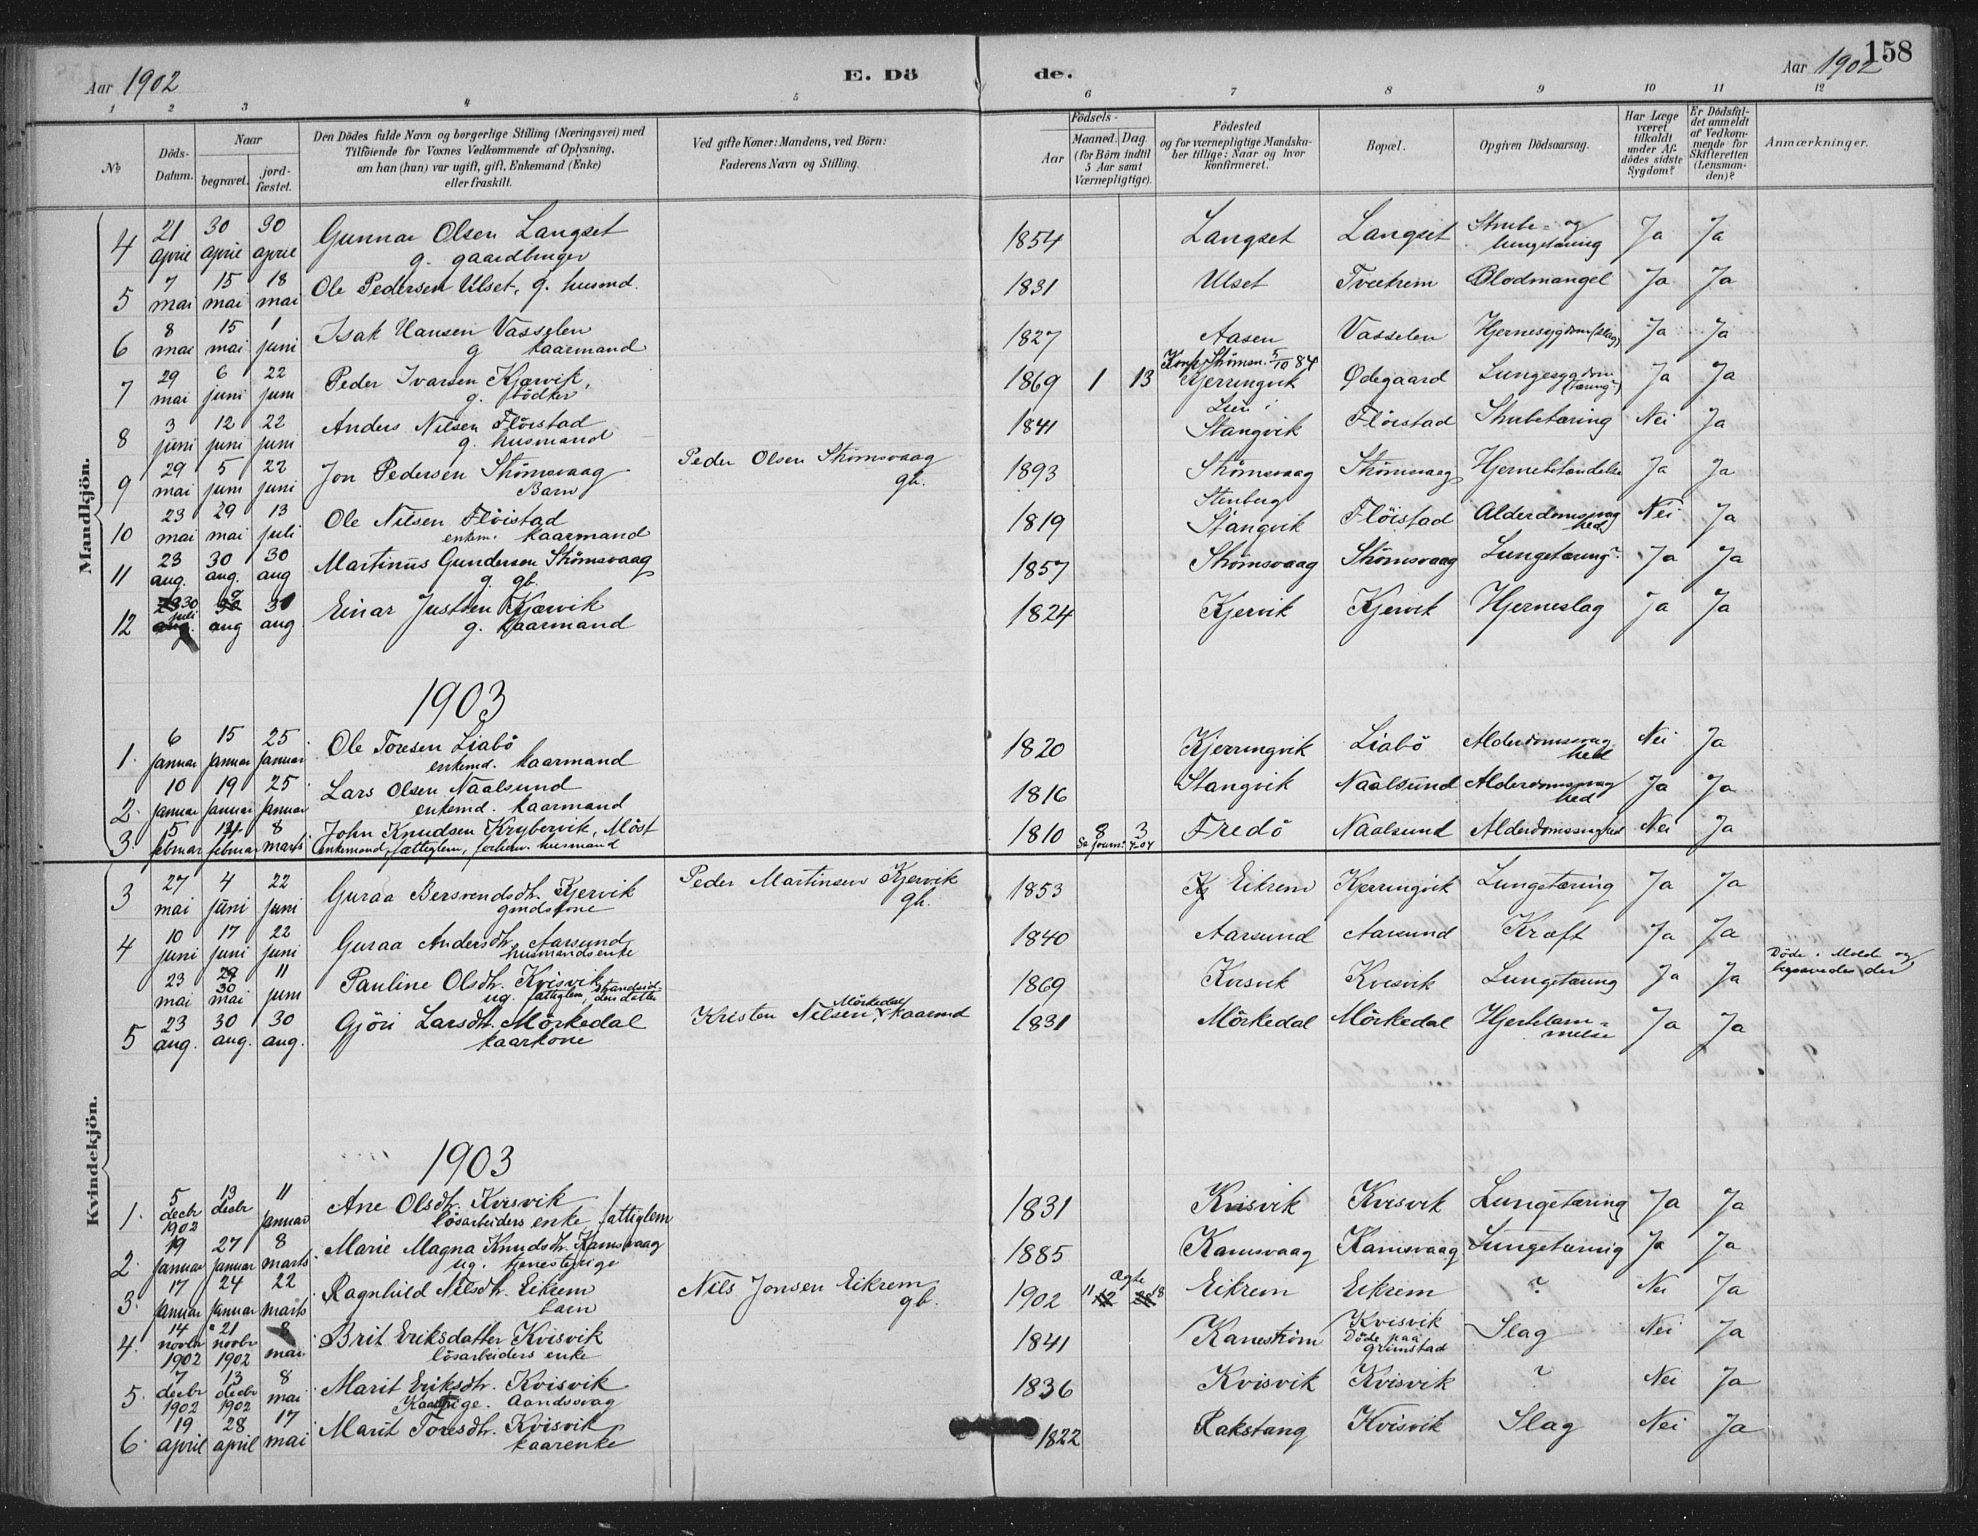 Aar 1902 E. Dö de. Aar 1902 158
1 2 3 4 5 6 7 8 9 10 11 12
No Döds-Datum. Naar begravet. jordfæstet. Den Dödes fulde Navn og borgerlige Stilling (Næringsvei) med Tilföiende for Voxnes Vedkommende af Oplysning, om han (hun) var ugift, gift, Enkemand (Enke) eller fraskilt. Ved gifte Koner: Mandens, ved Börn: Faderens Navn og Stilling. Födsels- Aar Maaned. Dag. (for Börn indtil 5 Aar samt Værnepligtige). Födested og for værnepligtige Mandskaber tillige: Naar og hvor konfirmeret. Bopæl. Opgiven Dödsaarsag. Har Læge været tilkaldt under Afdödes sidste Sygdom? Er Dödsfaldet anmeldt af Vedkommende for Skifteretten (Lensmanden)? Anmærkninger.
Mandkjön.
4 21 april 30 april 30 april Gunnar Olsen Langset g. gaardbruger 1854 Langset Langset Strube- og lungetæring Ja Ja
5 7 mai 15 mai 18 mai Ole Pedersen Ulset, g. husmd. 1831 Ulset Tveekrem Blodmangel Ja Ja
6 8 mai 15 mai 1 juni Isak Hansen Vasselen g kaarmand 1827 Aasen Vasselen Hjernesygdom (slag) Ja Ja
7 29 mai 6 juni 22 juni Peder Ivarsen Kjærvik, g. bödker 1869 1 13 Konf. Strömsn. 5/10 84 Kjerringvik Ødegaard Lungesygdom (tæring) Ja Ja
8 3 juni 12 juni 22 juni Anders Nilsen Flöistad g. husmand 1841 i Stangvik Flöistad Strubetæring Nei Ja
9 29 mai 5 juni 22 juni Jon Pedersen Strömsvaag Barn Peder Olsen Strömsvaag gb. 1893 Strömsvaag Strömsvaag Hjernebetændelse Ja Ja
10 23 mai 29 mai 13 juli Ole Nilsen Flöistad enkem. kaarmand 1819 Stenberg Stangvik Flöistad Alderdomssvaghed Nei Ja
11 23 aug. 30 aug. 30 aug Martinus Gundersen Strömsvaag g. gb. 1857 Strömsvaag Strömsvaag Lungetæring Ja Ja
12 30 juli aug 31 aug Einar Justsen Kjærvik g. kaarmand 1824 Kjervik Kjervik Hjerneslag Ja Ja
1903
1. 6 januar 15 januar 25 januar Ole Toresen Liabö enkemd. kaarmand 1820 Kjerringvik Liabö Alderdomssvaghed Nei Ja
2. 10 januar 19 januar 25 januar Lars Olsen Naalsund enkemd. kaarmand 1816 Stangvik Naalsund Alderdomssvaghed Ja Ja
3. 5 februar februar 8 marts John Knudsen Krybervik, Möst enkemand, fattiglem, forhenv. husmand 1810 8 Se journ. 3 4-04 Fredö Naalsund Alderdomssvaghed Nei Ja
Kvindekjön.
3 27 mai 4 juni 22 juni Guraa Bersvendsdtr. Kjervik gmdskone Peder Martinsen Kjervik gb. 1853 Kj Eikrem Kjerringvik Lungetæring Ja Ja
4 10 juni 17 juni 22 juni Guraa Andersdtr. Aarsund husmandsenke 1840 Aarsund Aarsund Kræft Ja Ja
23 mai 29 30 mai 11 juni Pauline Olsdtr. Kvisvik ug. fattiglem, strandsid. datter 1869 Kvisvik Kvisvik Lungetæring Ja Ja Döde i Molde og begravedes der
5 23 aug. 30 aug. 30 aug. Gjöri Larsdtr. Mörkedal kaarkone Kristen Nilsen Mörkedal, kaarmd 1831 Mörkedal Mörkedal Hjertelammelse Ja Ja
1903
1. 5 decbr 1902 13 decbr 11 januar Ane Olsdtr. Kvisvik lösarbeiders enke fattiglem 1831 Kvisvik Kvisvik Lungetæring Ja Ja
2. 19 januar 27 januar 8 marts Marie Magna Knudsdtr. Kamsvaag ug. tjenestepige 1885 Kamsvaag Kamsvaag Lungetæring Ja Ja
3. 17 januar 24 januar 22 marts Ragnhild Nilsdtr. Eikrem barn Nils Jonsen Eikrem gb. 1902 11 12 ægte 18 Eikrem Eikrem ? Nei Ja
4. 14 novbr 1902 21 novbr 1902 8 mai Brit Eriksdatter Kvisvik lösarbeiders enke 1841 Kaneström Kvisvik Döde paa Grimstad Slag Nei Ja
5. 7 decbr 1902 13 decbr 1902 8 mai Marit Eriksdtr. Kvisvik Kaarpige. Aandssvag 1836 Kvisvik Kvisvik ? Nei Ja
6. 19 april 28 april 17 mai Marit Toresdtr. Kvisvik kaarenke 1822 Rakstang Kvisvik Slag Nei Ja